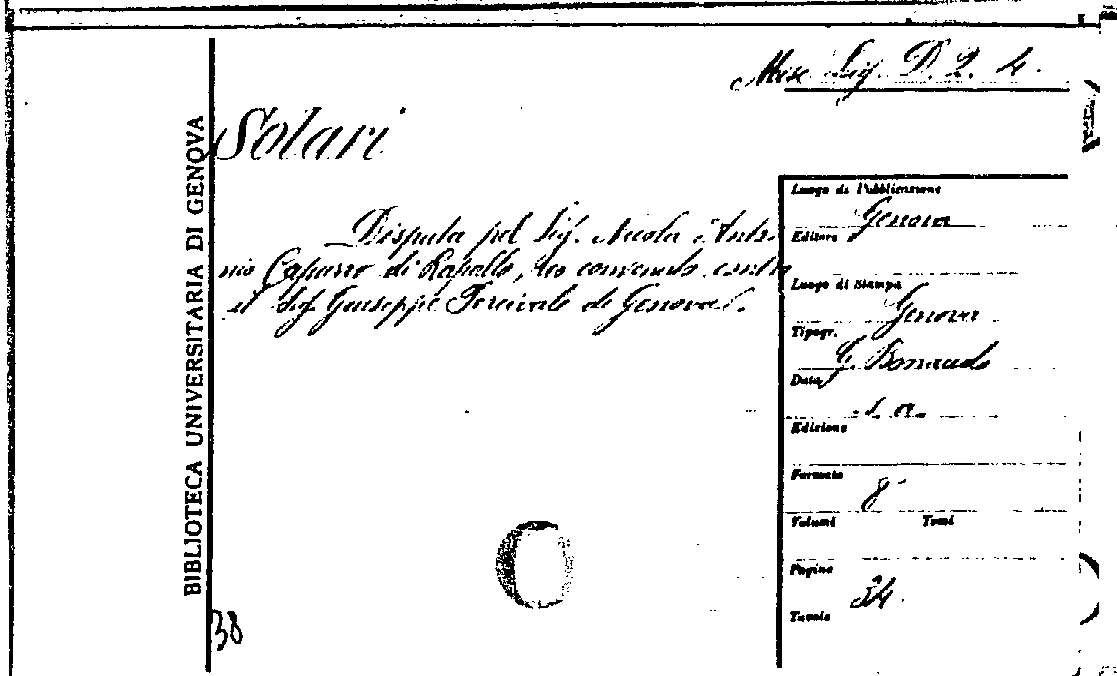 Misc Lig. D. 2. 4.
Solari
BIBLIOTECA UNIVERSITARIA DI GENOVA
Disputa pel Sig. Nicola Anto-
nio Caparro di Rapallo, reo convenuto contro
il Sig. Giuseppe Percivale di Genova.
Luogo di Pubblicazione
Genova
Editore
Luogo di Stampa
Genova
Tipogr.
G. Bonaudo
Data
s. a.
Edizione
Formato
8°
Volumi Tomi
Pagine
34.
Tavole
38